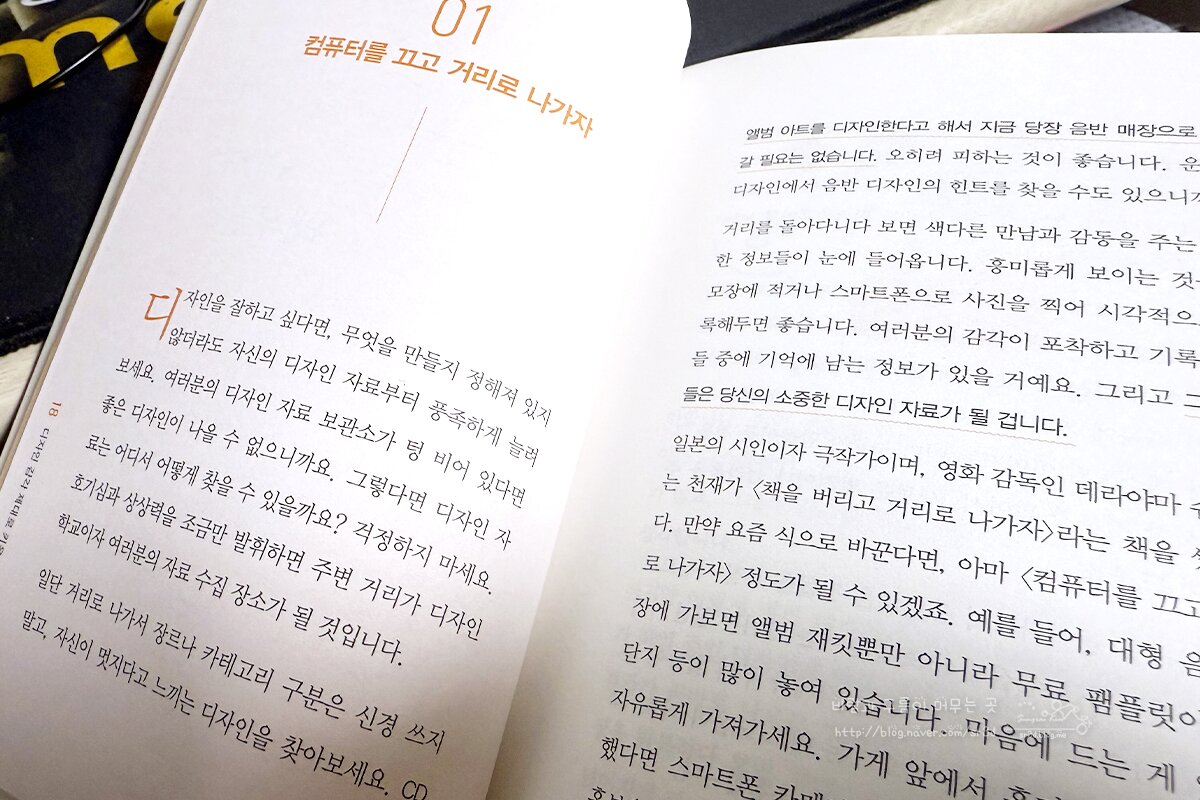 01
컴퓨터를 끄고 거리로 나가자
디자인을 잘하고 싶다면, 무엇을 만들지 정해져 있지
않더라도 자신의 디자인 자료부터 풍족하게 늘려
보세요. 여러분의 디자인 자료 보관소가 텅 비어 있다면
좋은 디자인이 나올 수 없으니까요. 그렇다면 디자인 자
료는 어디서 어떻게 찾을 수 있을까요? 걱정하지 마세요.
호기심과 상상력을 조금만 발휘하면 주변 거리가 디자인
학교이자 여러분의 자료 수집 장소가 될 것입니다.
일단 거리로 나가서 장르나 카테고리 구분은 신경 쓰지
말고, 자신이 멋지다고 느끼는 디자인을 찾아보세요. CD
18 디자인 감각 제대로
앨범 아트를 디자인한다고 해서 지금 당장 음반 매장으로
갈 필요는 없습니다. 오히려 피하는 것이 좋습니다. 운
디자인에서 음반 디자인의 힌트를 찾을 수도 있으니까
거리를 돌아다니다 보면 색다른 만남과 감동을 주는
한 정보들이 눈에 들어옵니다. 흥미롭게 보이는 것
모장에 적거나 스마트폰으로 사진을 찍어 시각적으
록해두면 좋습니다. 여러분의 감각이 포착하고 기록
들 중에 기억에 남는 정보가 있을 거예요. 그리고 그
들은 당신의 소중한 디자인 자료가 될 겁니다.
일본의 시인이자 극작가이며, 영화 감독인 데라야마
는 천재가 〈책을 버리고 거리로 나가자〉라는 책을
다. 만약 요즘 식으로 바꾼다면, 아마 〈컴퓨터를 끄고
로 나가자〉 정도가 될 수 있겠죠. 예를 들어, 대형 음
장에 가보면 앨범 재킷뿐만 아니라 무료 팸플릿이
단지 등이 많이 놓여 있습니다. 마음에 드는 게
자유롭게 가져가세요. 가게 앞에서
했다면 스마트폰 카메
머무는 곳